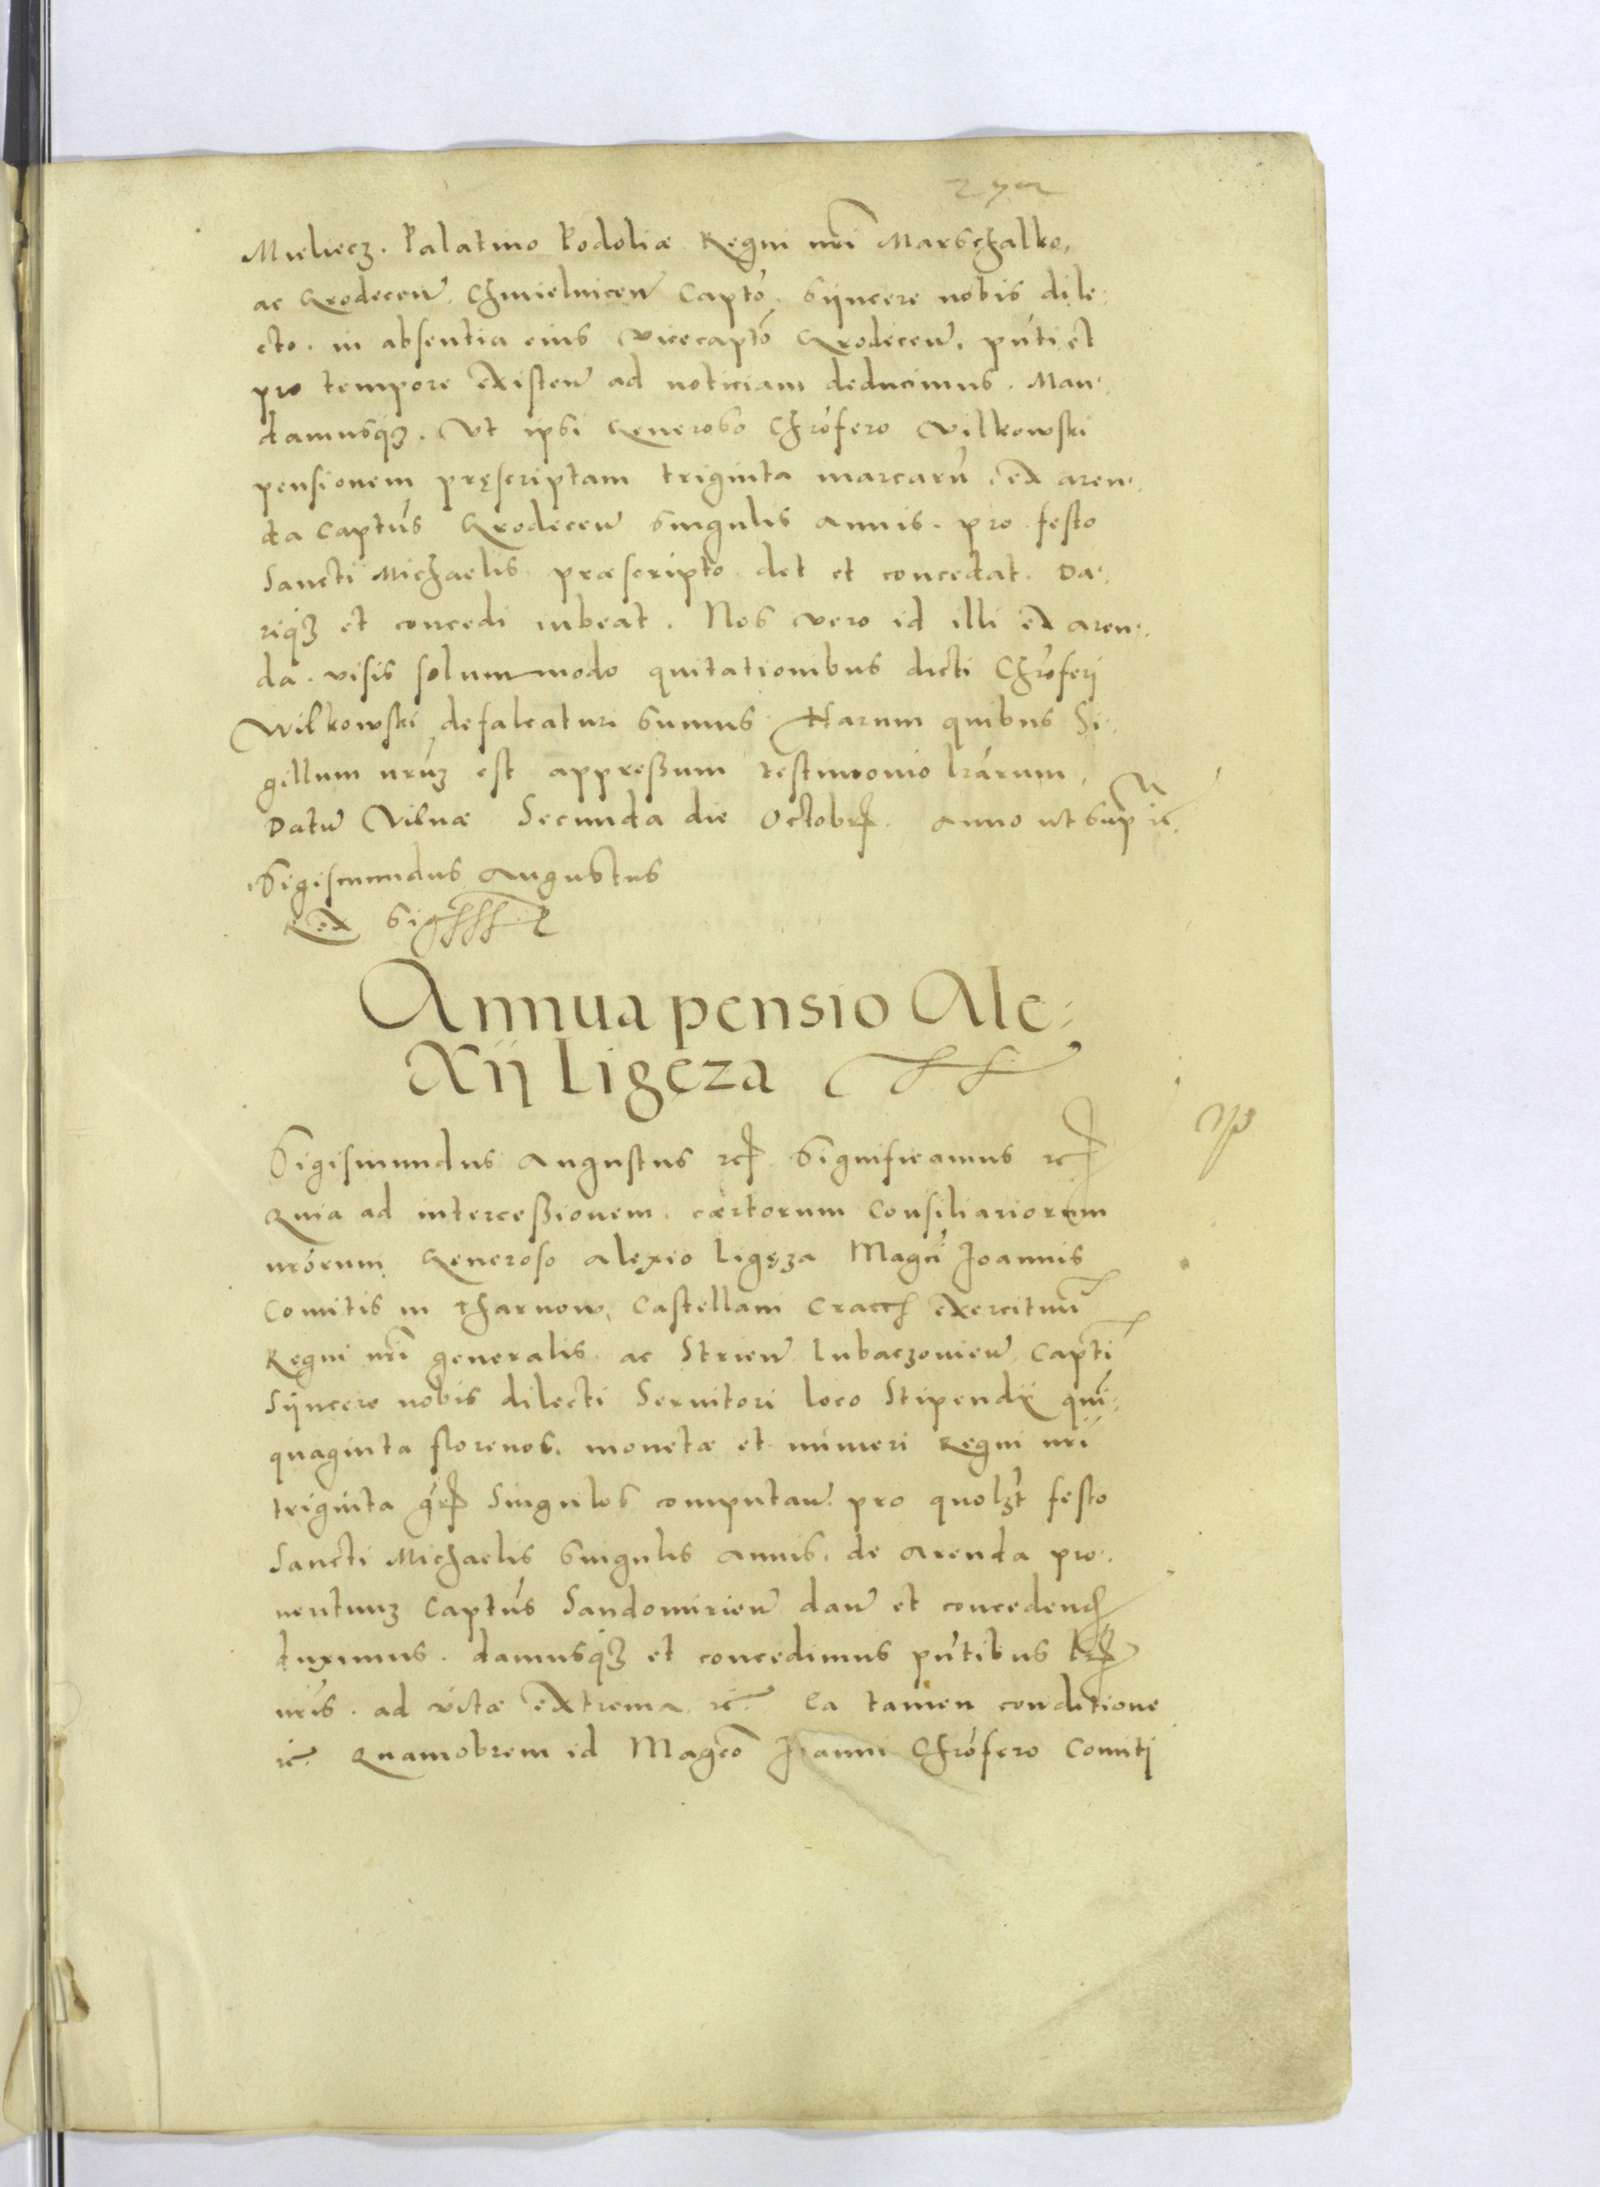 Mieliecz. Palatino Podoliæ Regni nri Marschalko,
ac Grodecen Chmielnicen Capto. Syncere nobis dile-
cto. in absentia eius Vicecapto Grodecen. pnti et
pro tempore existen ad noticiam deducimus. Man-
damusqz. Ut ipsi Generoso Chrofero Vilkowski
pensionem pręscriptam triginta marcarū ex aren-
da Captus Grodecen singulis annis. pro festo
Sancti Michaelis præscripto det et concedat. Da-
riqz et concedi iubeat. Nos vero id illi ex aren-
da. visis solummodo quitationibus dicti Chroferj
Wilkowski defalcaturi sumus Harum quibus Si-
gillum nruz est appressum testimonio lrarum,
Datu Vilnæ Secunda die Octobr. anno ut sup rc.
Sigismundus Augustus
Rex
Annua pensio Ale-
xij Ligeza
Sigismundus Augustus rc. Significamus rc
Quia ad intercessionem. cærtorum Consiliariorum
nrorum Generoso Alexio Ligęza Magci Joannis
Comitis in Tharnow, Castellani Cracc exercituū
Regni nri generalis. ac Strien Lubaczovien Capti
Syncere nobis dilecti Servitori loco Stipendij quī-
quaginta florenos. monetæ et numeri Regni nri
triginta gr singulos computan. pro quolzt festo
Sancti Michaelis singulis annis. de Arenda pro-
ventuuz Captus Sandomirien dan et concedend
duximus. damusqz et concedimus pntibus lr
nris. ad vitæ extrema. rc Ea tamen conditione
rc. Quamobrem id Magco Joanni Chrofero Comiti